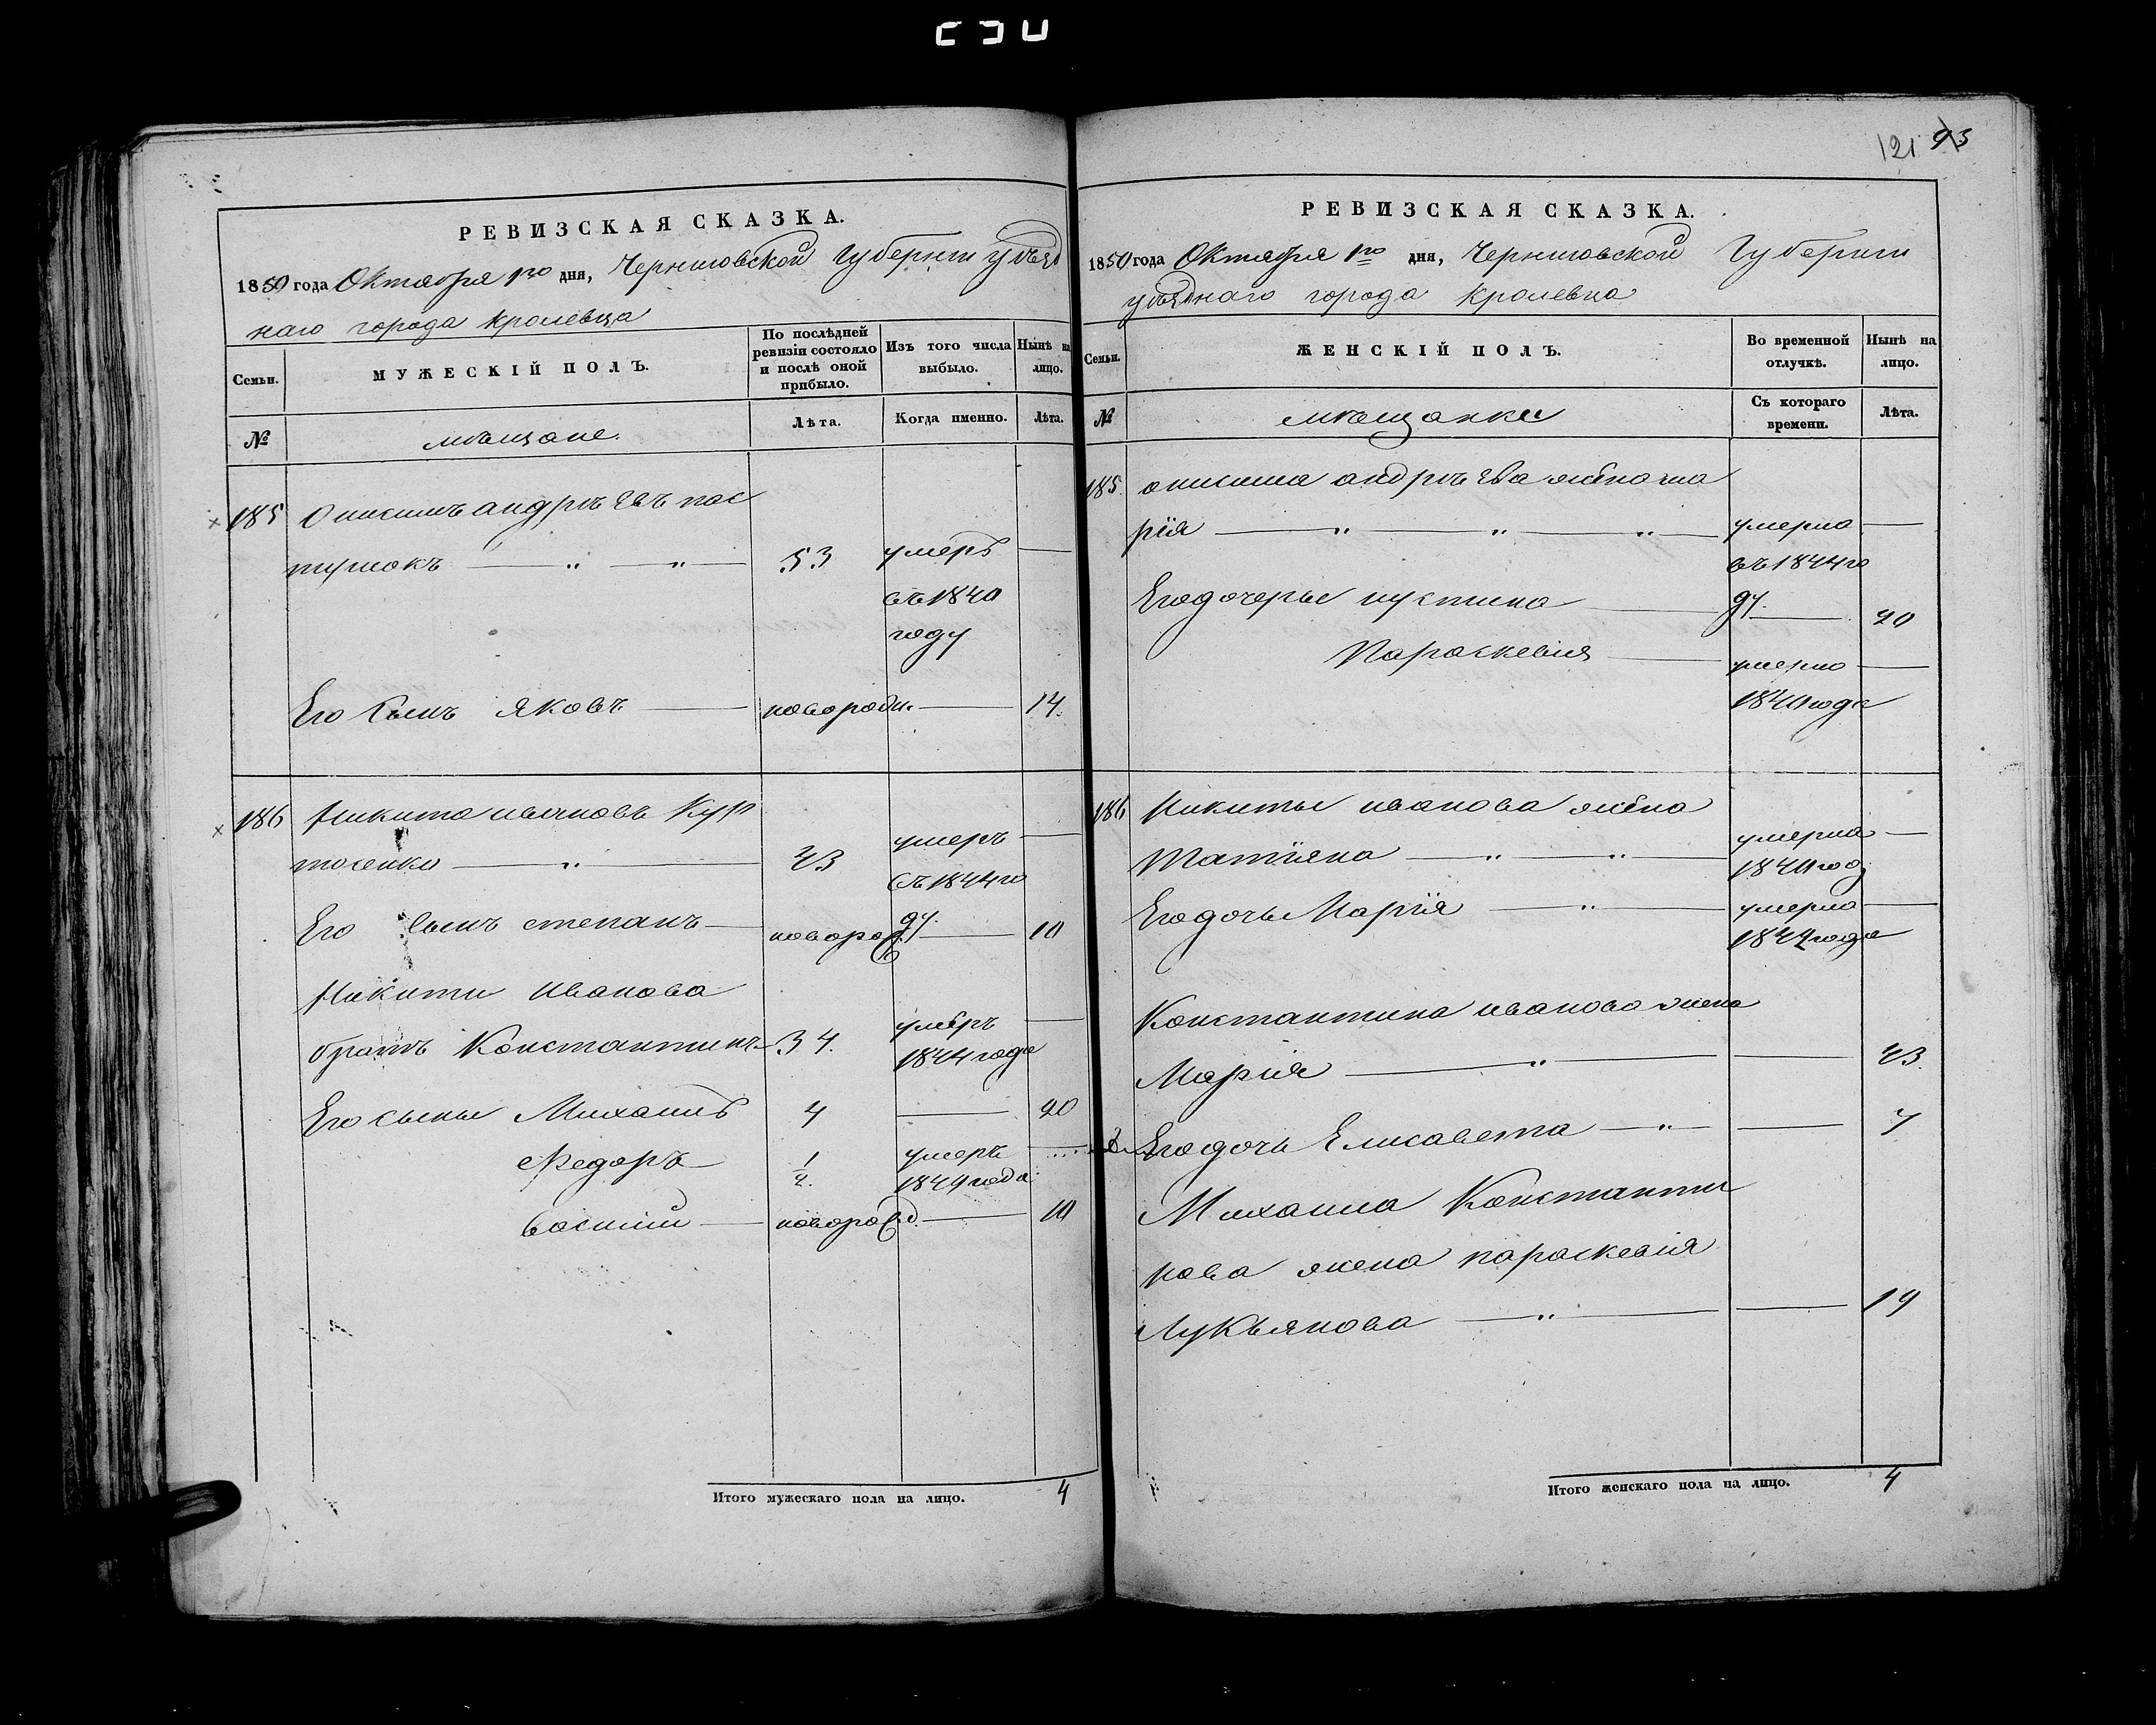 121 93
РЕВИЗСКАЯ СКАЗКА.
1850 года Октября 1го дня, Черниговской Губернии уѣзд
наго города Кролевца
Семьи. МУЖЕСКІЙ ПОЛЪ. По послѣдней ревизіи состояло и послѣ оной прибыло. Изъ того числа выбыло. Нынѣ на лицо.
№ мѣщане. Лѣта. Когда именно. Лѣта.
185 Онисимъ андрѣевъ пас
тушокъ 53 умеръ
въ 1840
году
Его Сынъ Яковъ новорожд. 14.
186 Никита ивановъ
умеръ
43
въ 1844 го
ду.
Его Сынъ степанъ новорож. 10
Никиты Иванова
братъ Константинъ 34. умеръ
1844 года
Его сыны Михаилъ 4 20
Федоръ 1/2. умеръ
1849 года
Василий новорожд. 10
Итого мужескаго пола на лицо. 4
РЕВИЗСКАЯ СКАЗКА.
1850 года Октября 1го дня, Черниговской Губернии
уѣзднаго города Кролевца
Семьи. ЖЕНСКІЙ ПОЛЪ. Во временной отлучкѣ. Нынѣ на лицо.
№ мѣщанки Съ котораго времени. Лѣта.
185. онисима андрѣева жена ма
рія умерла
въ 1844 го
ду.
Его дочерье иустина 20
Параскевия умерла
1840 года
186 Никиты иванова жена
Татіяна умерла
1840 год
Его дочь Марія умерла
1844 года
Константина иванова жена
Мария 43.
Его дочь Елисавета 7
Михаила Константи
нова жена параскевия
Лукъянова 19
Итого женскаго пола на лицо. 4